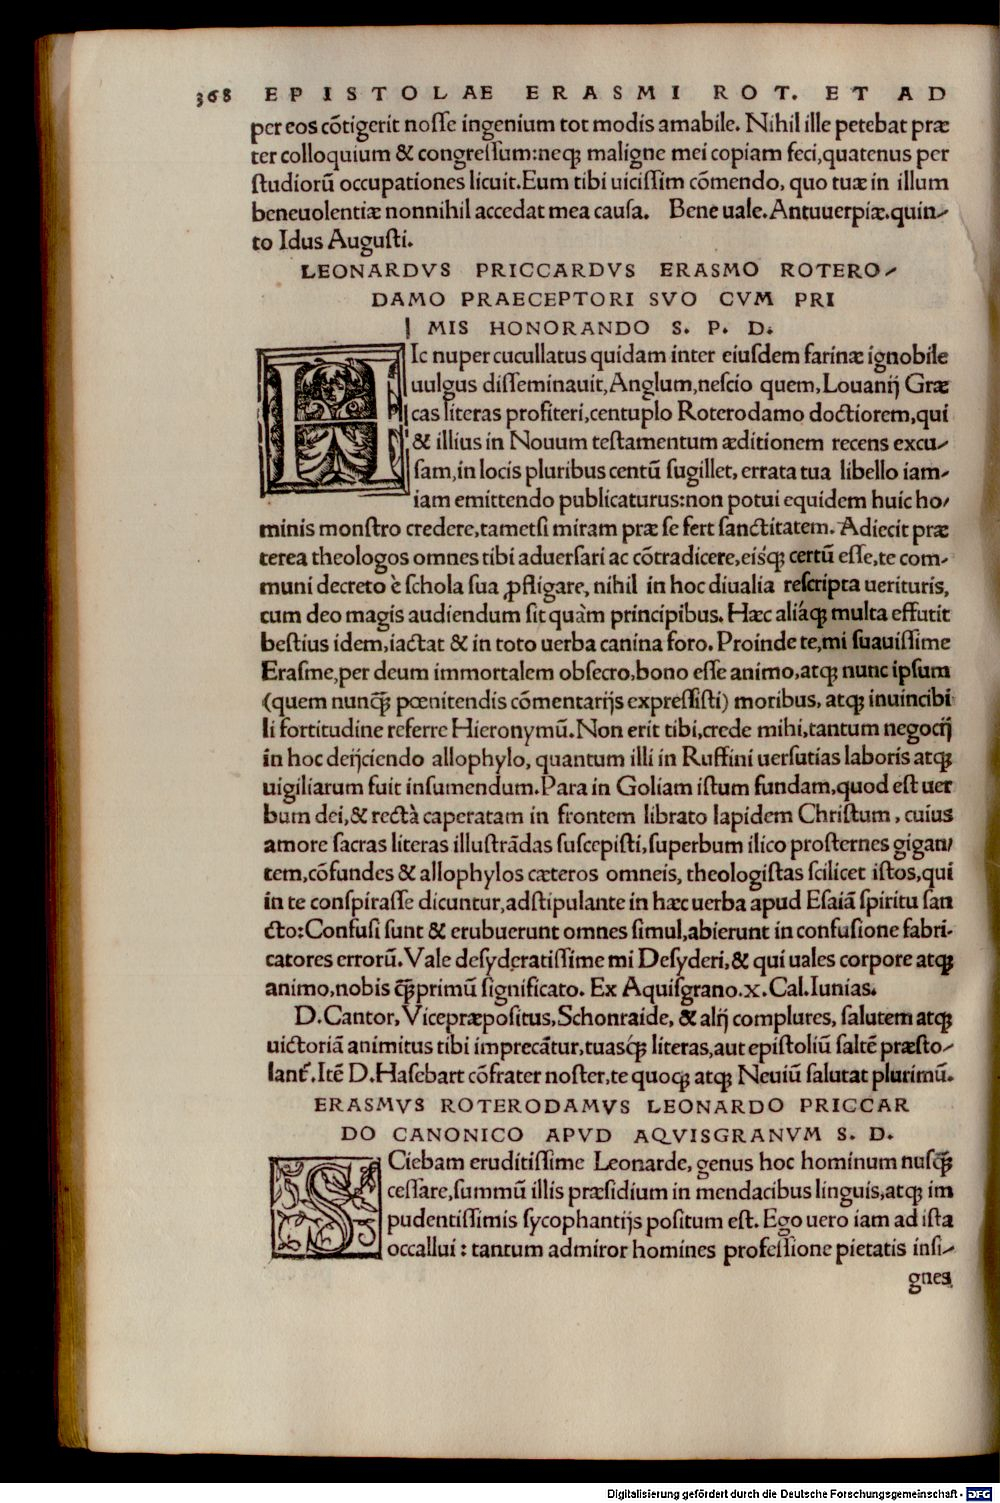 368 EPISTOLAE ERASMI ROT. ET AD
per eos cõtigerit nosse ingenium tot modis amabile. Nihil ille petebat præ
ter colloquium & congressum:neqꝫ maligne mei copiam feci,quatenus per
studiorũ occupationes licuit.Eum tibi uicissim cõmendo, quo tuæ in illum
beneuolentiæ nonnihil accedat mea causa. Bene uale.Antuuerpiæ.quin-
to Idus Augusti.
LEONARDVS PRICCARDVS ERASMO ROTERO-
DAMO PRAECEPTORI SVO CVM PRI
MIS HONORANDO S. P. D.
HIc nuper cucullatus quidam inter eiusdem farinæ ignobile
uulgus disseminauit,Anglum,nescio quem,Louanij Græ
cas literas profiteri,centuplo Roterodamo doctiorem,qui
& illius in Nouum testamentum æditionem recens excu-
sam,in locis pluribus centũ sugillet, errata tua libello iam-
iam emittendo publicaturus:non potui equidem huic ho-
minis monstro credere,tametsi miram præ se fert sanctitatem. Adiecit præ
terea theologos omnes tibi aduersari ac cõtradicere,eisqꝫ certũ esse,te com-
muni decreto è schola sua ꝓfligare, nihil in hoc diualia rescripta uerituris,
cum deo magis audiendum sit quàm principibus. Hæc aliáqꝫ multa effutit
bestius idem,iactat & in toto uerba canina foro. Proinde te,mi suauissime
Erasme,per deum immortalem obsecro,bono esse animo,atqꝫ nunc ipsum
(quem nunꝗ̃ pœnitendis cõmentarijs expressisti) moribus, atqꝫ inuincibi
li fortitudine referre Hieronymũ. Non erit tibi,crede mihi,tantum negocij
in hoc deijciendo allophylo, quantum illi in Ruffini uersutias laboris atqꝫ
uigiliarum fuit insumendum.Para in Goliam istum fundam,quod est uer
bum dei,& rectà caperatam in frontem librato lapidem Christum, cuius
amore sacras literas illustrãdas suscepisti,superbum ilico prosternes gigan-
tem,cõfundes & allophylos cæteros omneis, theologistas scilicet istos,qui
in te conspirasse dicuntur,adstipulante in hæc uerba apud Esaiã spiritu san
cto:Confusi sunt & erubuerunt omnes simul,abierunt in confusione fabri-
catores errorũ. Vale desyderatissime mi Desyderi,& qui uales corpore atqꝫ
animo,nobis ꝗ̃primũ significato. Ex Aquisgrano.x.Cal.Iunias.
D.Cantor, Vicepræpositus,Schonraide, & alij complures, salutem atqꝫ
uictoriã animitus tibi imprecãtur,tuasqꝫ literas,aut epistoliũ saltẽ præsto-
lant᷑.Itẽ D.Hasebart cõfrater noster,te quoqꝫ atqꝫ Neuiũ salutat plurimũ.
ERASMVS ROTERODAMVS LEONARDO PRICCAR
DO CANONICO APVD AQVISGRANVM S. D.
SCiebam eruditissime Leonarde, genus hoc hominum nusꝗ̃
cessare,summũ illis præsidium in mendacibus linguis,atqꝫ im
pudentissimis sycophantijs positum est. Ego uero iam ad ista
occallui: tantum admiror homines professione pietatis insi-
gnes
Digitalisierung gefördert durch die Deutsche Forschungsgemeinschaft - DFG